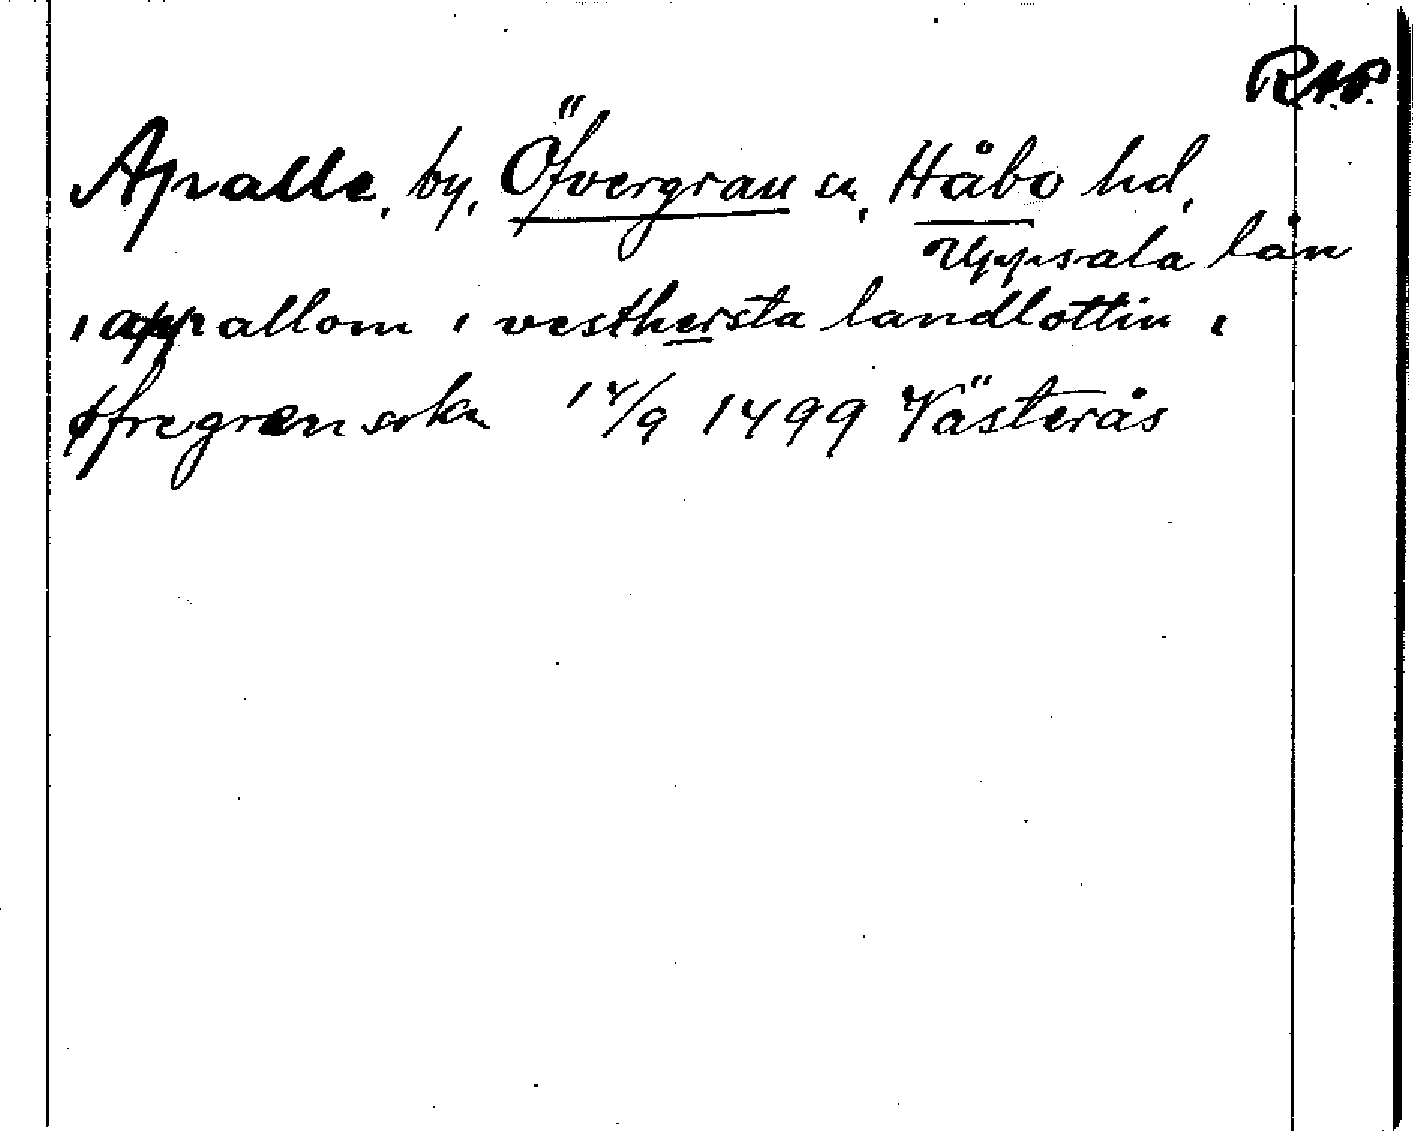 R.A.P.
Apalle, by, Öfvergran sn, Håbo hd,
Uppsala län
i appallom i vesthersta landlottin i
øfregræn sokn 14/9 1499 Västerås